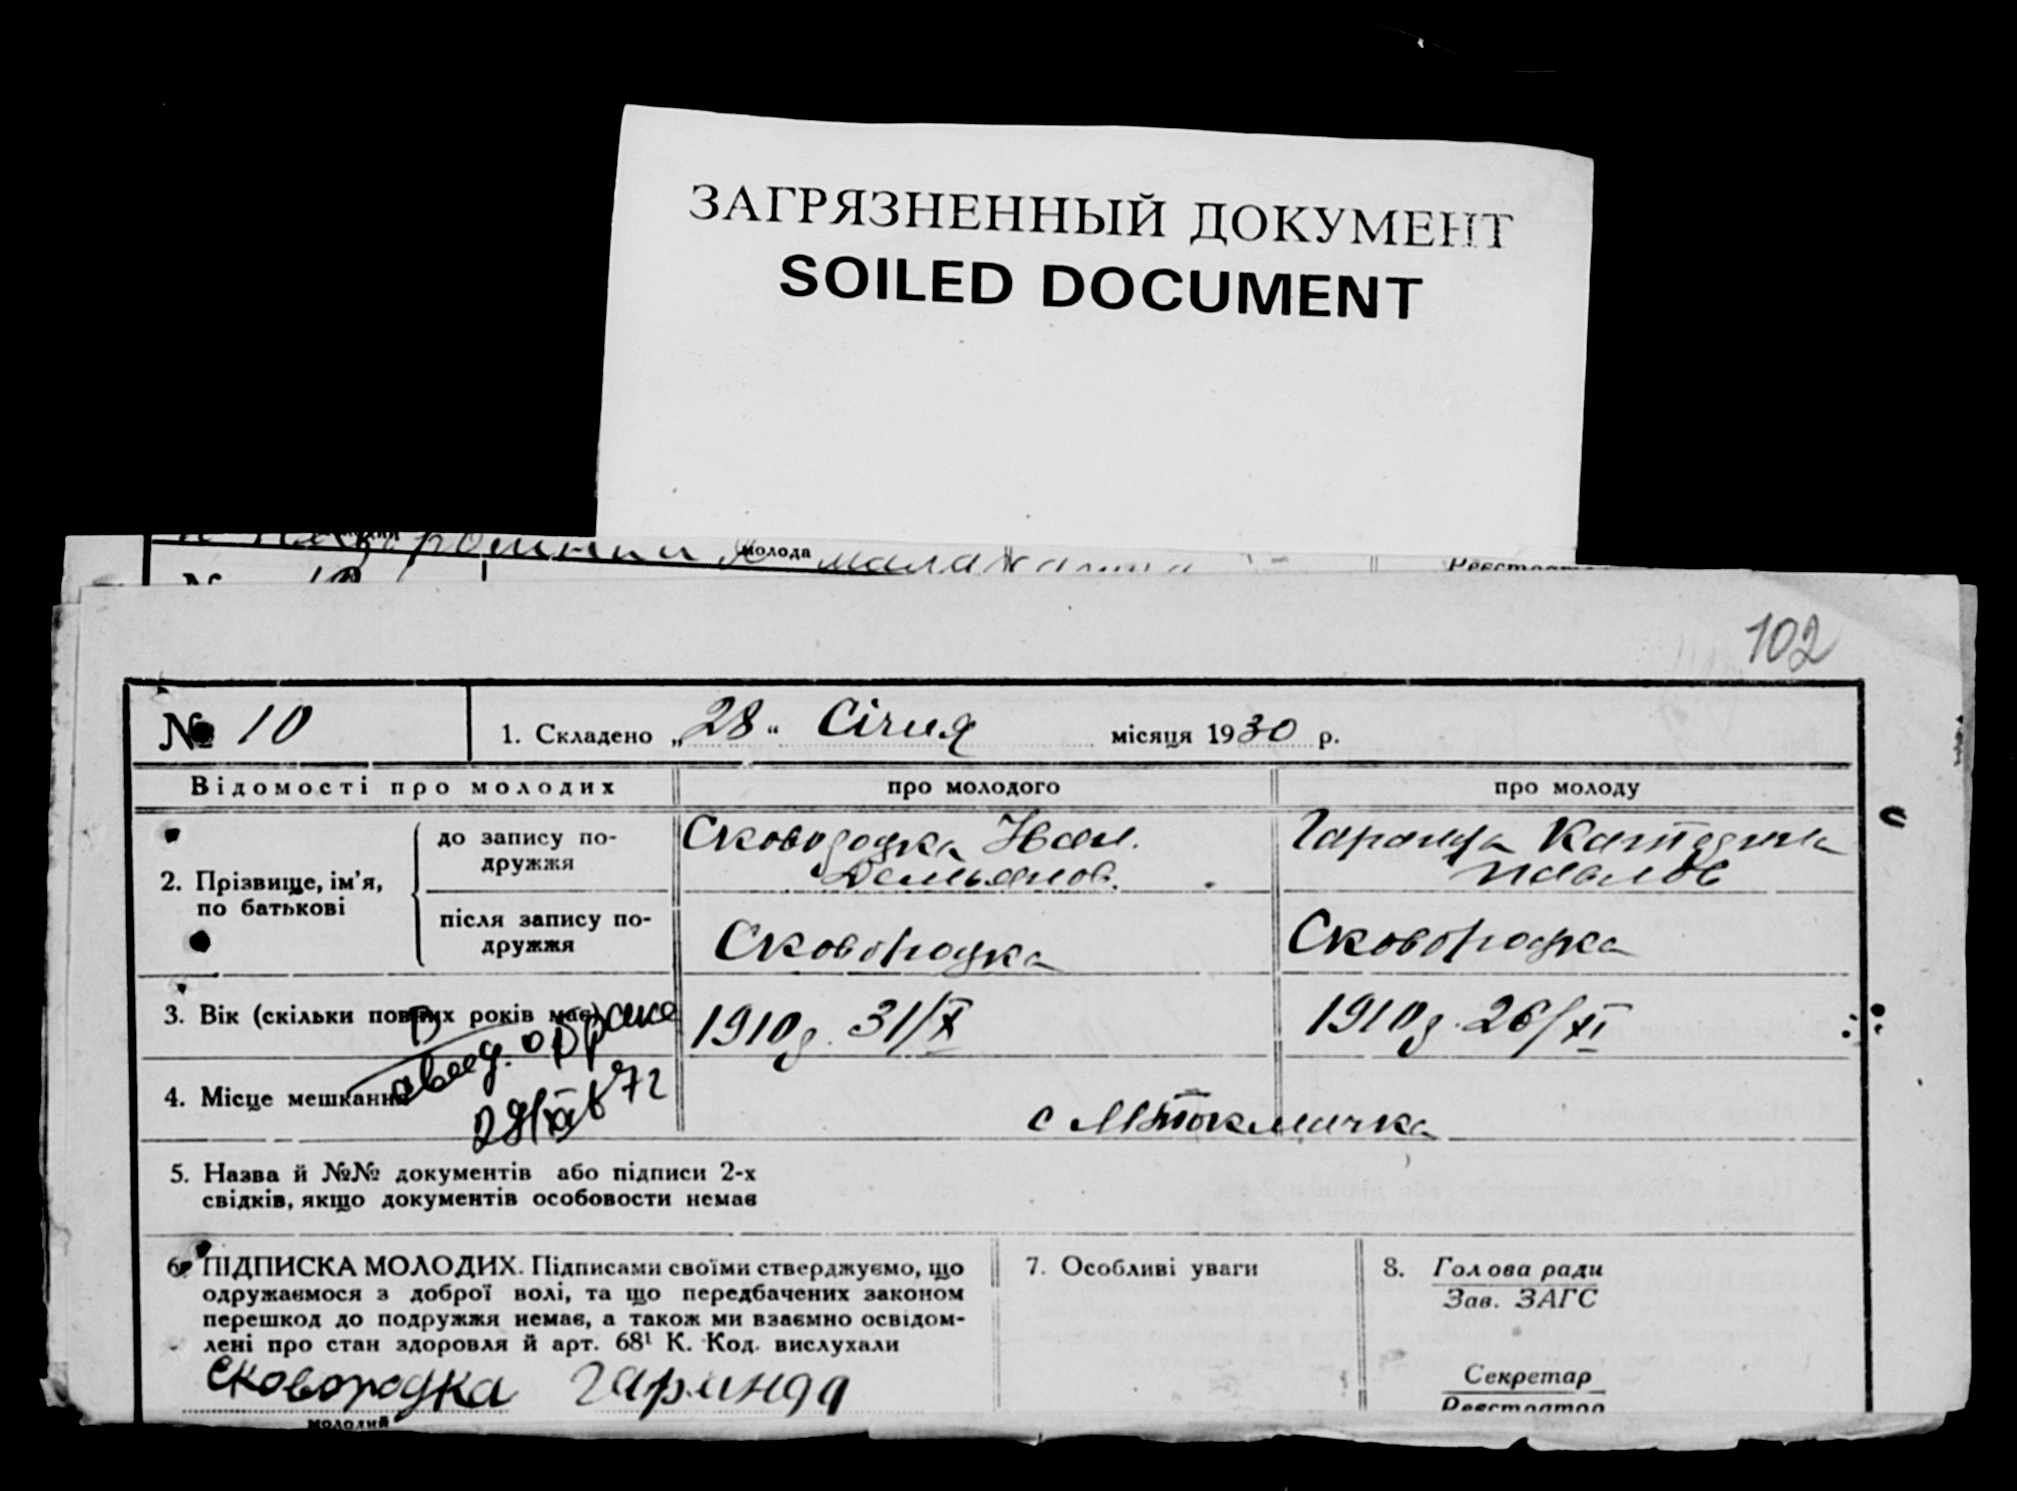 ЗАГРЯЗНЕННЫЙ ДОКУМЕНТ
SOILED DOCUMENT
молода
102
№ 10
1. Складено „28“ Січня місяця 1930 р.
Відомості про молодих
про молодого
про молоду
2. Прізвище, ім’я, по батькові
до запису по-
дружжя
Сковородка Иван.
Демьянов.
Катерина
Павлов
після запису по-
дружжя
Сковородка
Сковородка
3. Вік (скільки повних років має)
1910 р. 31/X
1910 р. 26/XI
4. Місце мешкання
с М Токмачка
5. Назва й №№ документів або підписи 2-х
свідків, якщо документів особовости немає
6. ПІДПИСКА МОЛОДИХ. Підписами своїми стверджуємо, що
одружаємося з доброї волі, та що передбачених законом
перешкод до подружжя немає, а також ми взаємно освідом-
лені про стан здоровля й арт. 68¹ К. Код. вислухали
Сковородка
молодий
7. Особливі уваги
8. Голова ради
Зав. ЗАГС
Секретар
Реєстратор